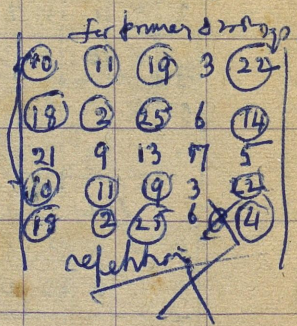 for primary &
10 11 19 3 22
18 2 25 6 14
21 9 13 17 5
10 11 9 3 22
18 2 25 6 4
repetition